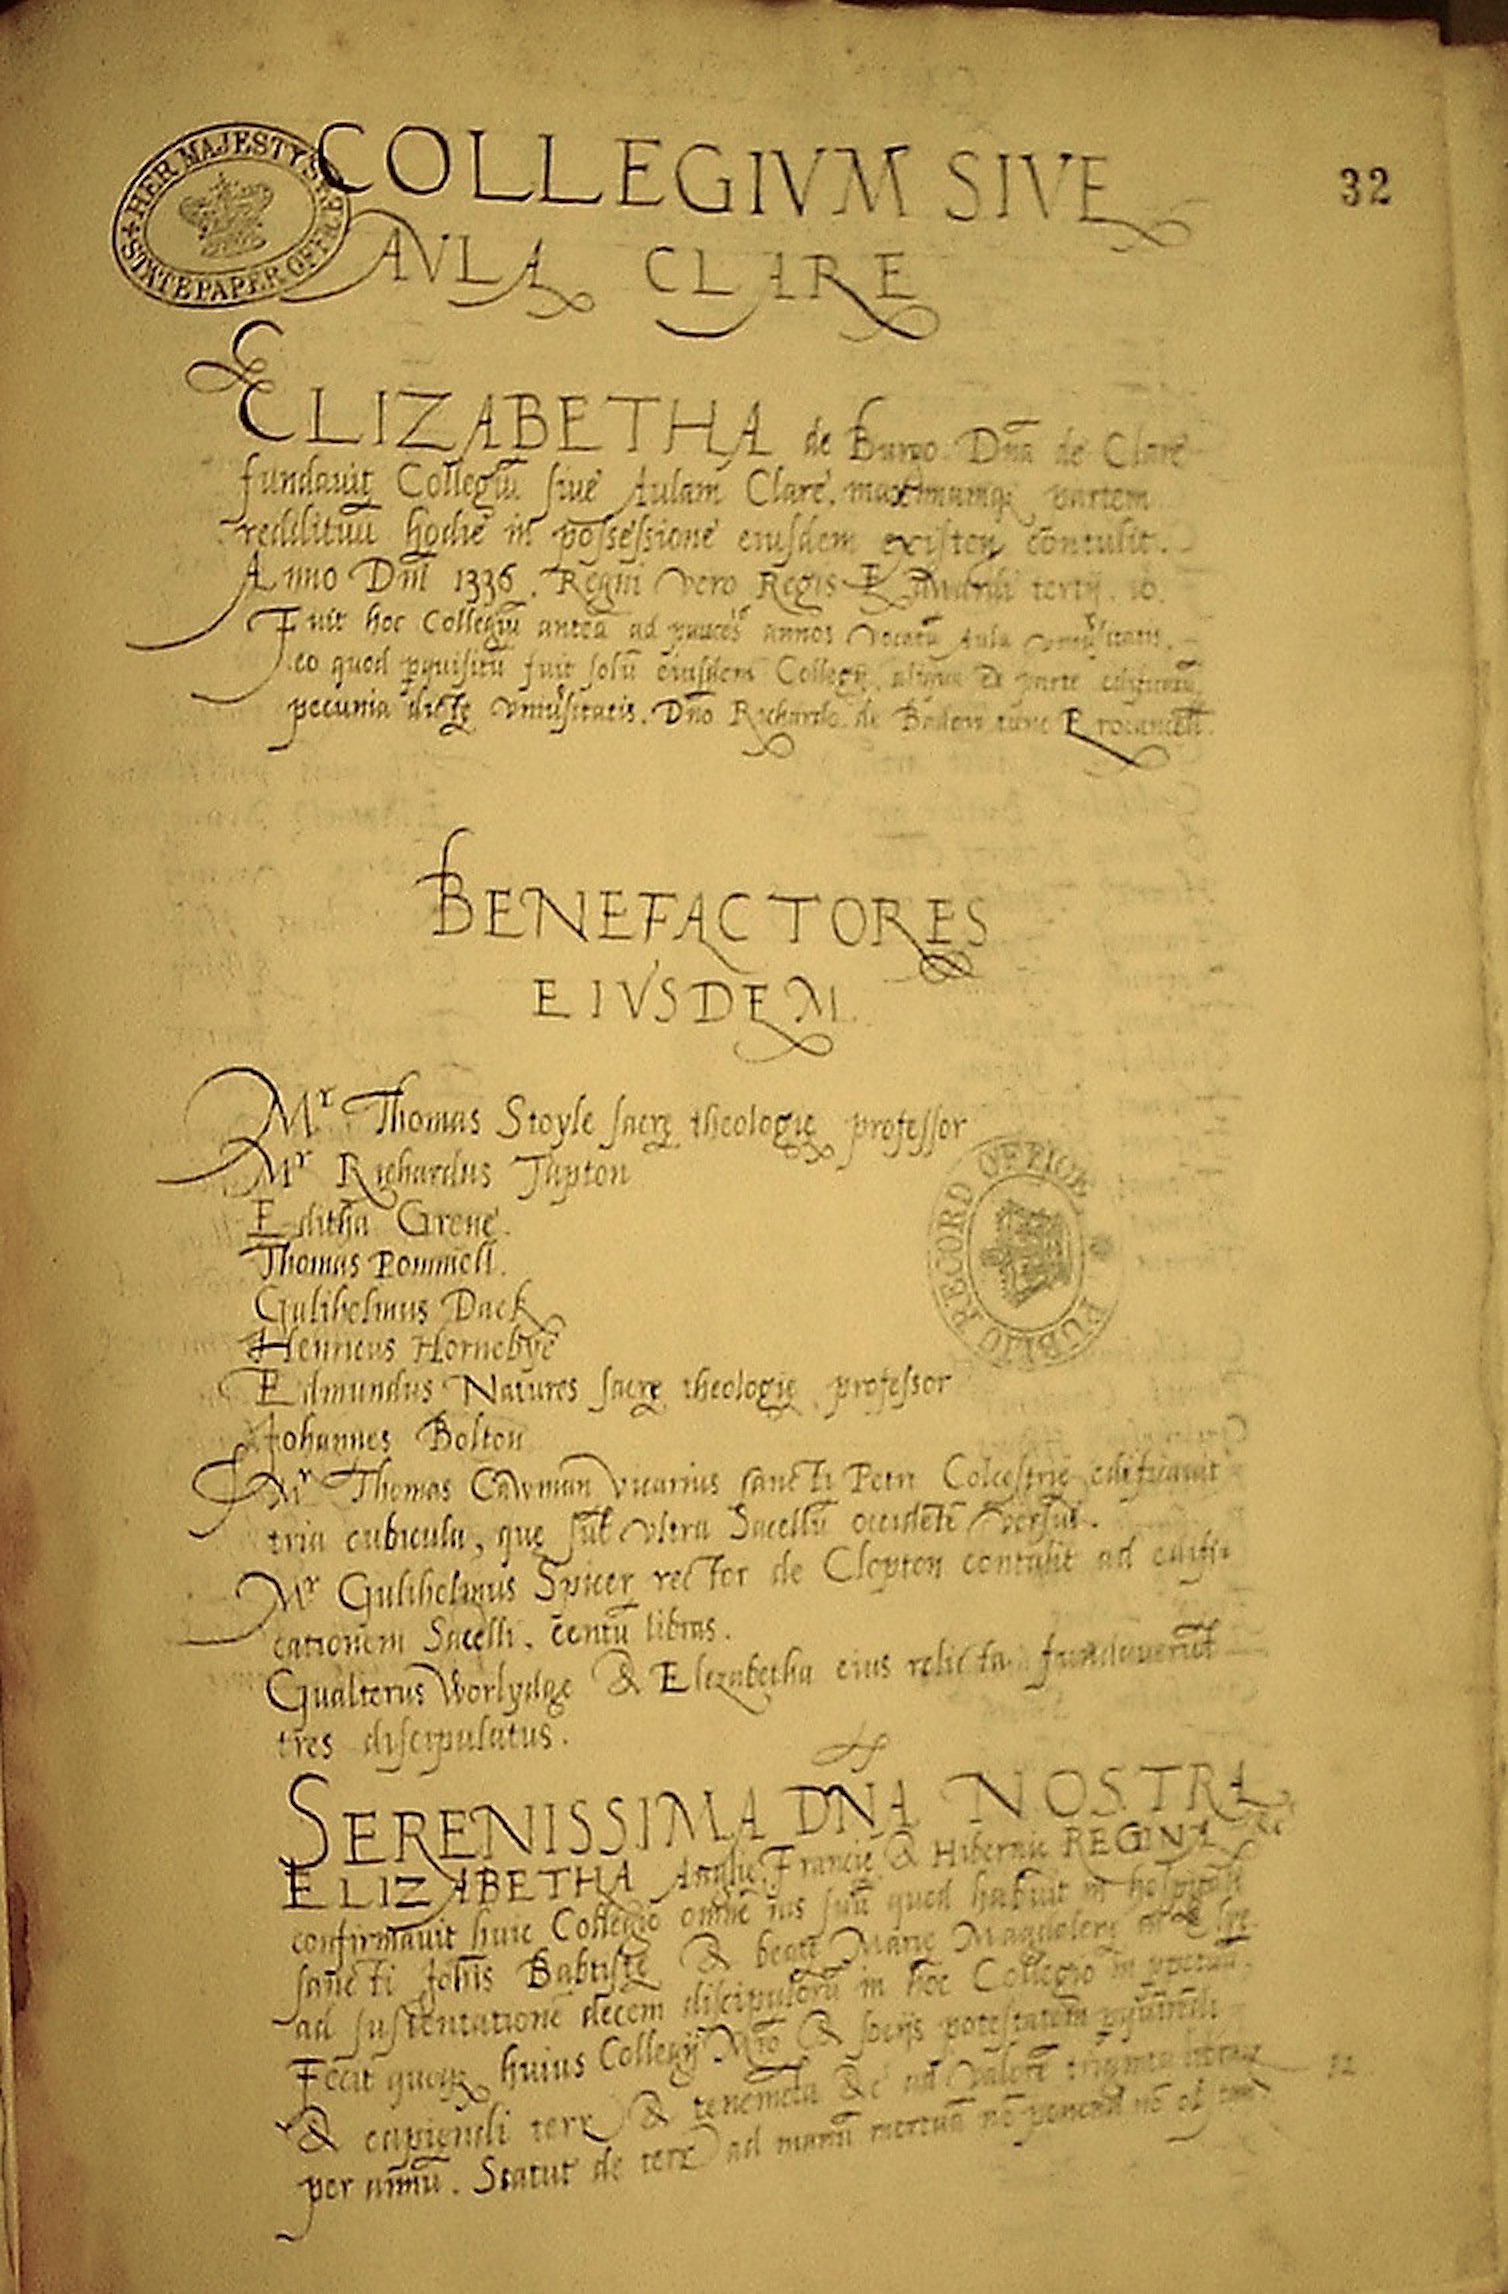 HER MAJESTY'S STATE PAPER OFFICE
COLLEGIVM SIVE
32
AVLA CLARE
ELIZABETHA de Burgo Dña de Clare
fundauit Collegiū siue Aulam Clare, maximamq; partem
redditūu hodie in possessione eiusdem existen contulit.
Anno Dñi 1336. Regni vero Regis Edwardi tertij. 10.
Fuit hoc Collegiū antea ad paucos annos vocatū Aula vniu̅sitatis,
eo quod pquisitū fuit solū eiusdem Collegij, aliqua ex parte edificatū,
pecunia dictę vniu̅sitatis. Dño Richardo de Badew tunc Procancell.
BENEFACTORES
EIVSDEM
Mr Thomas Stoyle sacrę theologię professor
Mr Richardus Tapton
Editha Grene.
Thomas Pommell.
Gulihelmus Dack
Henricus Hornebye
Edmundus Natures sacrę theologię professor
Johannes Bolton
Mr Thomas Cawman vicarius sancti Petri Colcestrie edificauit
tria cubicula, quę sūt vltra Sacellū occidētē versus.
Mr Gulihelmus Spicer rector de Clopton contulit ad edifi-
cationem Sacelli, centū libras.
Gualterus Worlydge & Elezabetha eius relicta fundauerūt
tres discipulatus.
SERENISSIMA DÑA NOSTRA
ELIZABETHA Anglię, Francię & Hibernię REGINA &c
confirmauit huic Collegio omnē ius suū quod habuit in hospitali
sancti Johīs Babtistę & beatę Marię Magdalenę de
ad sustentationē decem discipulorū in hoc Collegio in ppetuū.
Fecit quoq; huius Collegij Mro & socijs potestatem
& capiendi terr & tenemēta &c ad valorē triginta librar
per annū. Statut de terr ad manū mortuā nō ponend nō obstant
PUBLIC RECORD OFFICE